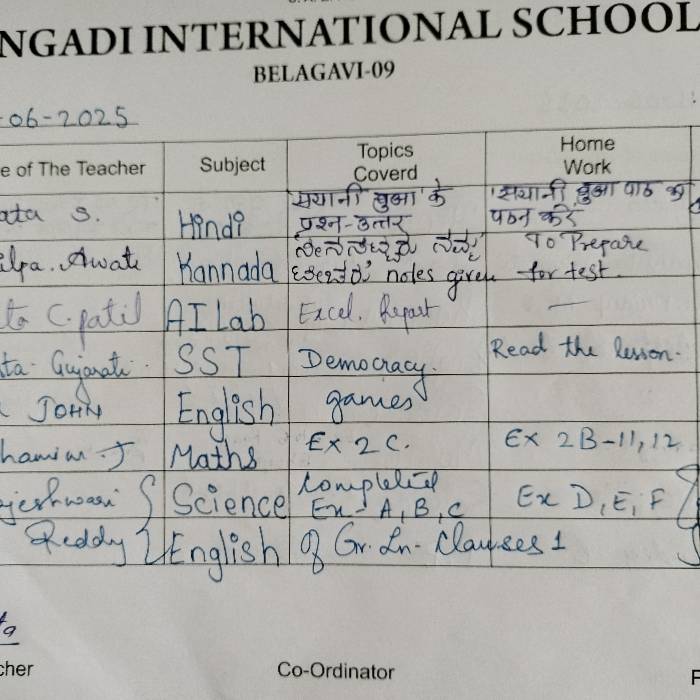 NGADI INTERNATIONAL SCHOOL
BELAGAVI-09
-06-2025
e of The Teacher Subject Topics Coverd Home Work
ata S. Hindi 'सयानी बुआ' के प्रश्न-उत्तर 'सयानी बुआ पाठ का पठन करें
ilpa. Awati Kannada notes given To Prepare for test.
ta C. patil AI Lab Excel. Report —
ta- Gujarati. SST Democracy. Read the lesson.
JOHN English games
hamim J Maths Ex 2C. Ex 2B-11,12
jeshwari Science Completed Ex- A, B, C Ex D, E, F
Reddy English of Gr. Ln- Clauses 1
cher Co-Ordinator